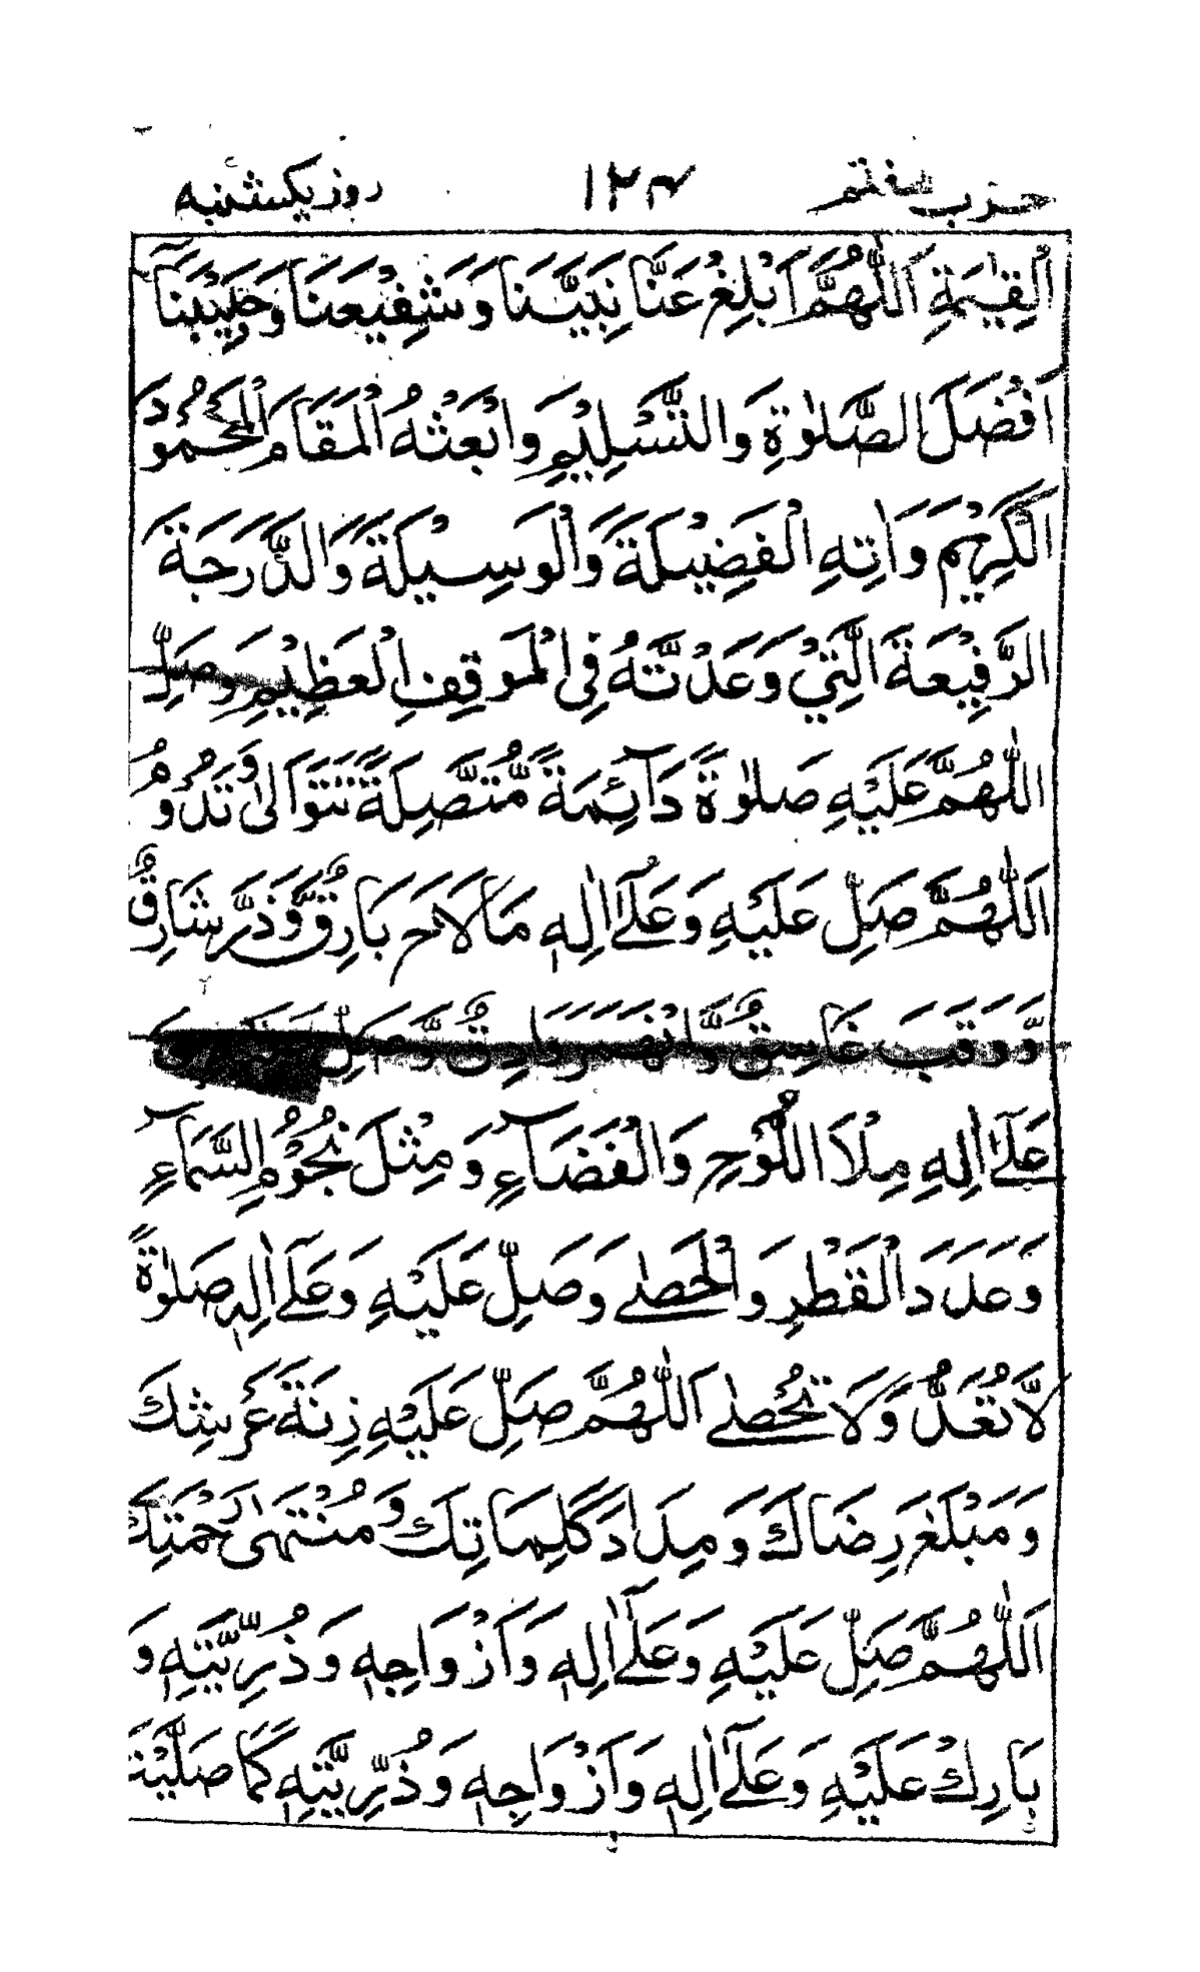 حزب هفتم ١٢٤ روز یکشنبه
الْقِيٰمَةِ اَللّٰهُمَّ اَبْلِغْ عَنَّا نَبِيَّنَا وَشَفِيْعَنَا وَحَبِيْبَنَا
اَفْضَلَ الصَّلٰوةِ وَالتَّسْلِيْمِ وَابْعَثْهُ الْمَقَامَ الْمَحْمُوْدَ
الْكَرِيْمَ وَاٰتِهِ الْفَضِيْلَةَ وَالْوَسِيْلَةَ وَالدَّرَجَةَ
الرَّفِيْعَةَ الَّتِيْ وَعَدْتَّهُ فِي الْمَوْقِفِ الْعَظِيْمِ وَصَلِّ
اللّٰهُمَّ عَلَيْهِ صَلٰوةً دَآئِمَةً مُّتَّصِلَةً تَتَوَالٰى وَتَدُوْمُ
اَللّٰهُمَّ صَلِّ عَلَيْهِ وَعَلٰٓى اٰلِهٖ مَالَاحَ بَارِقٌ وَّذَرَّ شَارِقٌ
وَّوَقَبَ غَاسِقٌ وَّانْهَمَرَ وَادِقٌ وَّصَلِّ عَلَيْهِ وَ
عَلٰٓى اٰلِهِ مِلْأَ اللَّوْحِ وَالْفَضَآءِ وَمِثْلَ نُجُوْمِ السَّمَآءِ
وَعَدَدَ الْقَطْرِ وَالْحَصٰى وَصَلِّ عَلَيْهِ وَعَلٰٓى اٰلِهٖ صَلٰوةً
لَّا تُعَدُّ وَلَا تُحْصٰى اَللّٰهُمَّ صَلِّ عَلَيْهِ زِنَةَ عَرْشِكَ
وَمَبْلَغَ رِضَاكَ وَمِدَادَ كَلِمَاتِكَ وَمُنْتَهٰى رَحْمَتِكَ
اَللّٰهُمَّ صَلِّ عَلَيْهِ وَعَلٰٓى اٰلِهٖ وَاَزْوَاجِهٖ وَذُرِّيَّتِهٖ وَ
بَارِكْ عَلَيْهِ وَعَلٰٓى اٰلِهٖ وَاَزْوَاجِهٖ وَذُرِّيَّتِهٖ كَمَا صَلَّيْتَ